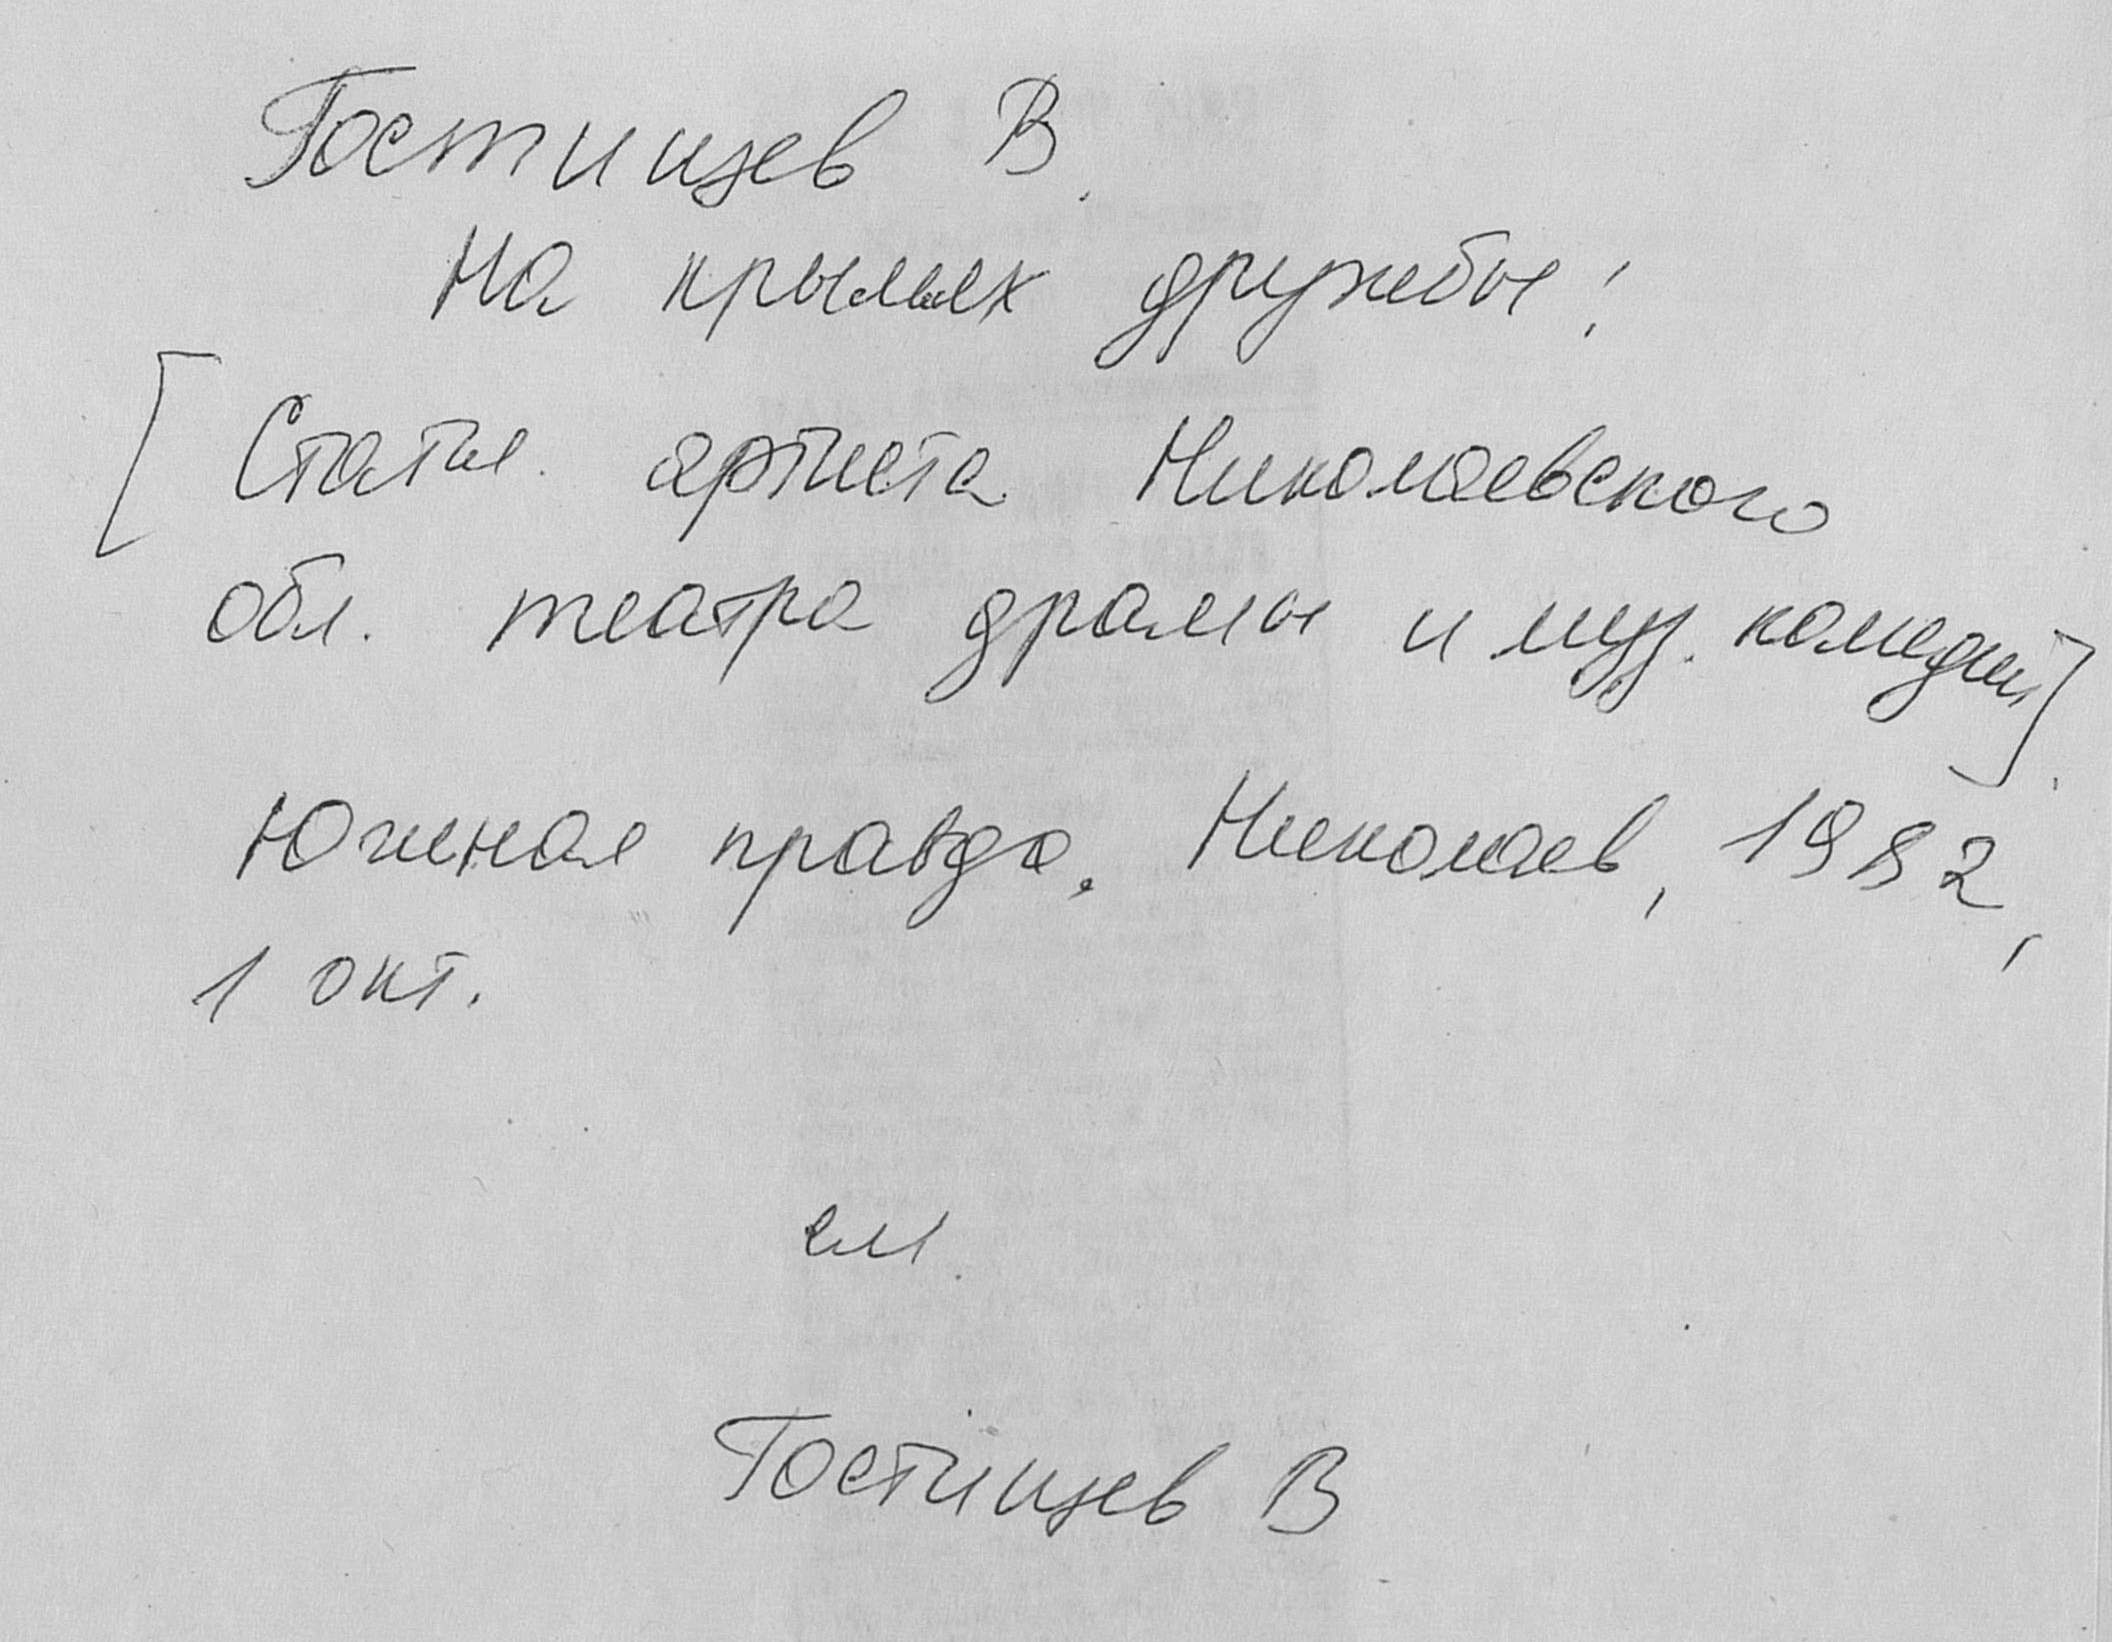 Гостищев В.
На крыльях дружбы:
[Статья артиста Николаевского
обл. театра драмы и муз. комедии].
Южная правда. Николаев, 1982,
1 окт.
см.
Гостищев В